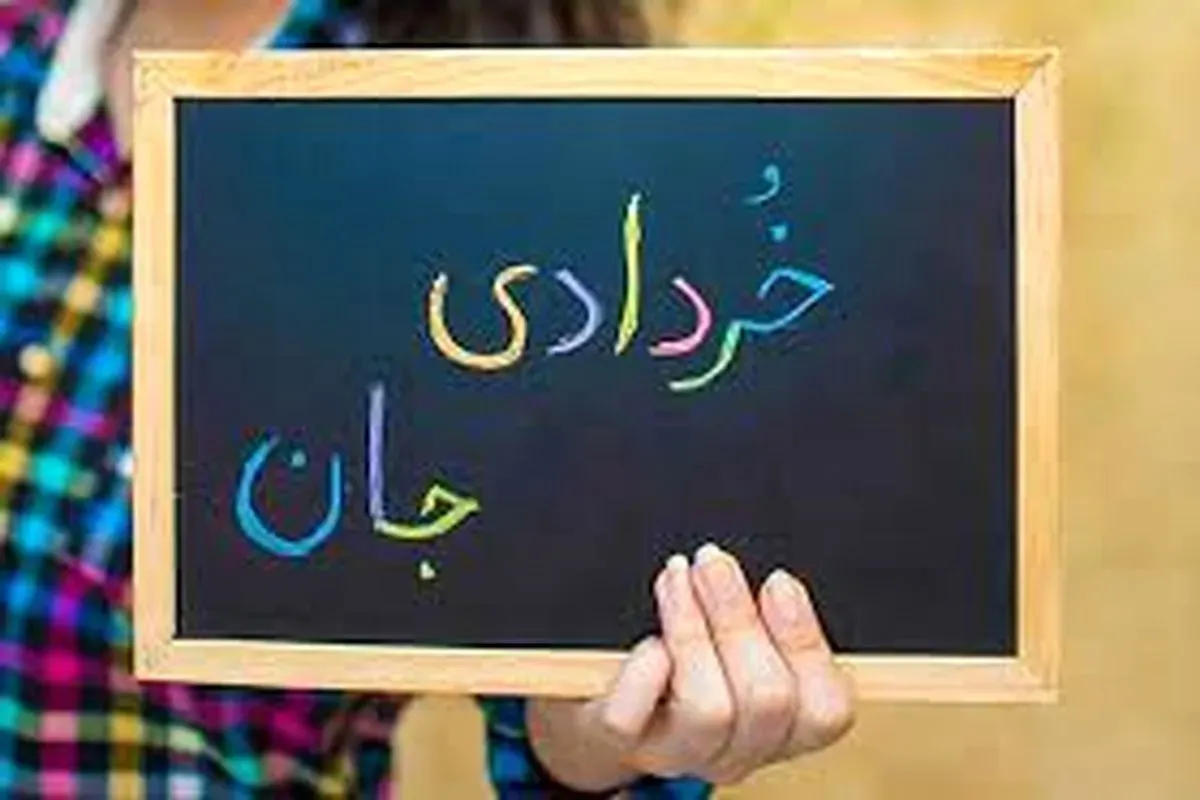 خُردادی
جان